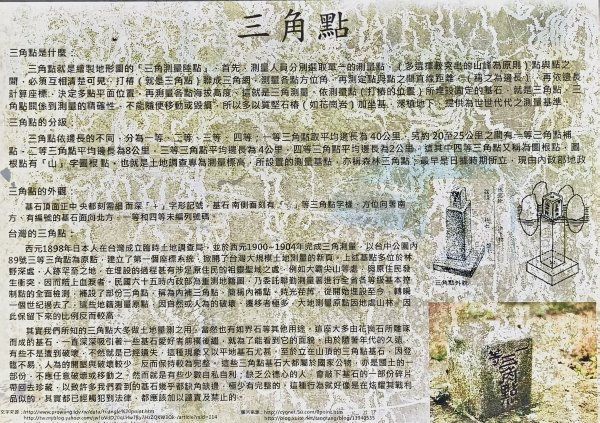 三角點
三角點是什麼：
三角點就是繪製地形圖的「三角測量陸點」，首先，測量人員分別選取單一的測量點，（多選擇較突出的山峰為原則）點與點之
間，必須互相清楚可見，打樁（就是三角點）聯成三角網，測量各點方位角，再測定點與點之間直線距離（稱之為邊長），再依邊長
計算座標，決定多點平面位置，再測量各點海拔高度，這就是三角測量。依測量點（打樁的位置）所埋設固定的基石，就是三角點，三
角點關係到測量的精確性，不能隨便移動或毀損，所以多以質堅石樁（如花崗岩）加坐基，深植地下，提供為世世代代之測量基準。
三角點的分級
三角點依邊長的不同，分為一等、二等、三等，四等，一等三角點取平均邊長為40公里，另約20至25公里之間有一等三角點補
點，二等三角點平均邊長為8公里，三等三角點平均邊長為4公里，四等三角點平均邊長為2公里，這其中四等三角點又稱為圖根點，圖
根點有「山」字圖根點，也就是土地調查專為測量標高，所設置的測量基點，亦稱森林三角點，最早是日據時期所立，現由內政部地政
三角點的外觀：
基石頂面正中央都刻需細而深「＋」字形記號，基石南側面刻有「 」等三角點字樣，方位向著南
方，有編號的基石面向北方，一等和四等未編列號碼。
台灣的三角點：
西元1898年日本人在台灣成立臨時土地調查局，並於西元1900~1904年完成三角測量，以台中公園內
89號三等三角點為原點，建立了第一個座標系統，掀開了台灣大規模土地測量的新頁。上述基點多位於林
野深處，人跡罕至之地，在埋設的過程甚有涉足原住民的祖靈聖域之處，例如大霸尖山等處，與原住民發
生衝突，因而賠上血淚者，民國六十五時內政部為重測地籍圖，乃委託聯勤測量署進行全省各等級基本控
制點的全面檢測，補設了部份三角點，稱為內補三角點，簡稱內補點，時光荏苒，從開始埋設至今，轉瞬
一個世紀過去了，這些地籍測量原點，因自然或人為的破壞，遷移者極多，大地測量原點因地處山林，因
此保留下來的比例反而較高。
其實我們所知的三角點大多做土地量測之用，當然也有如界石等其他用途，這座大多由花崗石所雕琢
而成的基石，一直深深吸引著一些基石愛好者前撲後繼，就為了能看到它的面貌。由於隨著年代的久遠，
有些不是遭到破壞，不然就是已經遺失，這種現象又以平地基石尤甚，至於立在山頂的三角點基石，因登
臨不易，人為的開墾與破壞較少，反而保持較為完整。這些三角點基石大都屬於國家公物，亦是國土的一
部份，不應任意破壞或移動之，然而就是有些少數自私自利，缺乏公德心的人，會敲下基石的一部份碎片
帶回去珍藏，以致許多我們看到的基石幾乎都缺角缺邊，極少有完整的，這種行為就好像是在炫耀其戰利
品似的，其實都已經觸犯到法律，都應該加以譴責及禁止的。
三角點外觀
文字來源：
圖片來源：